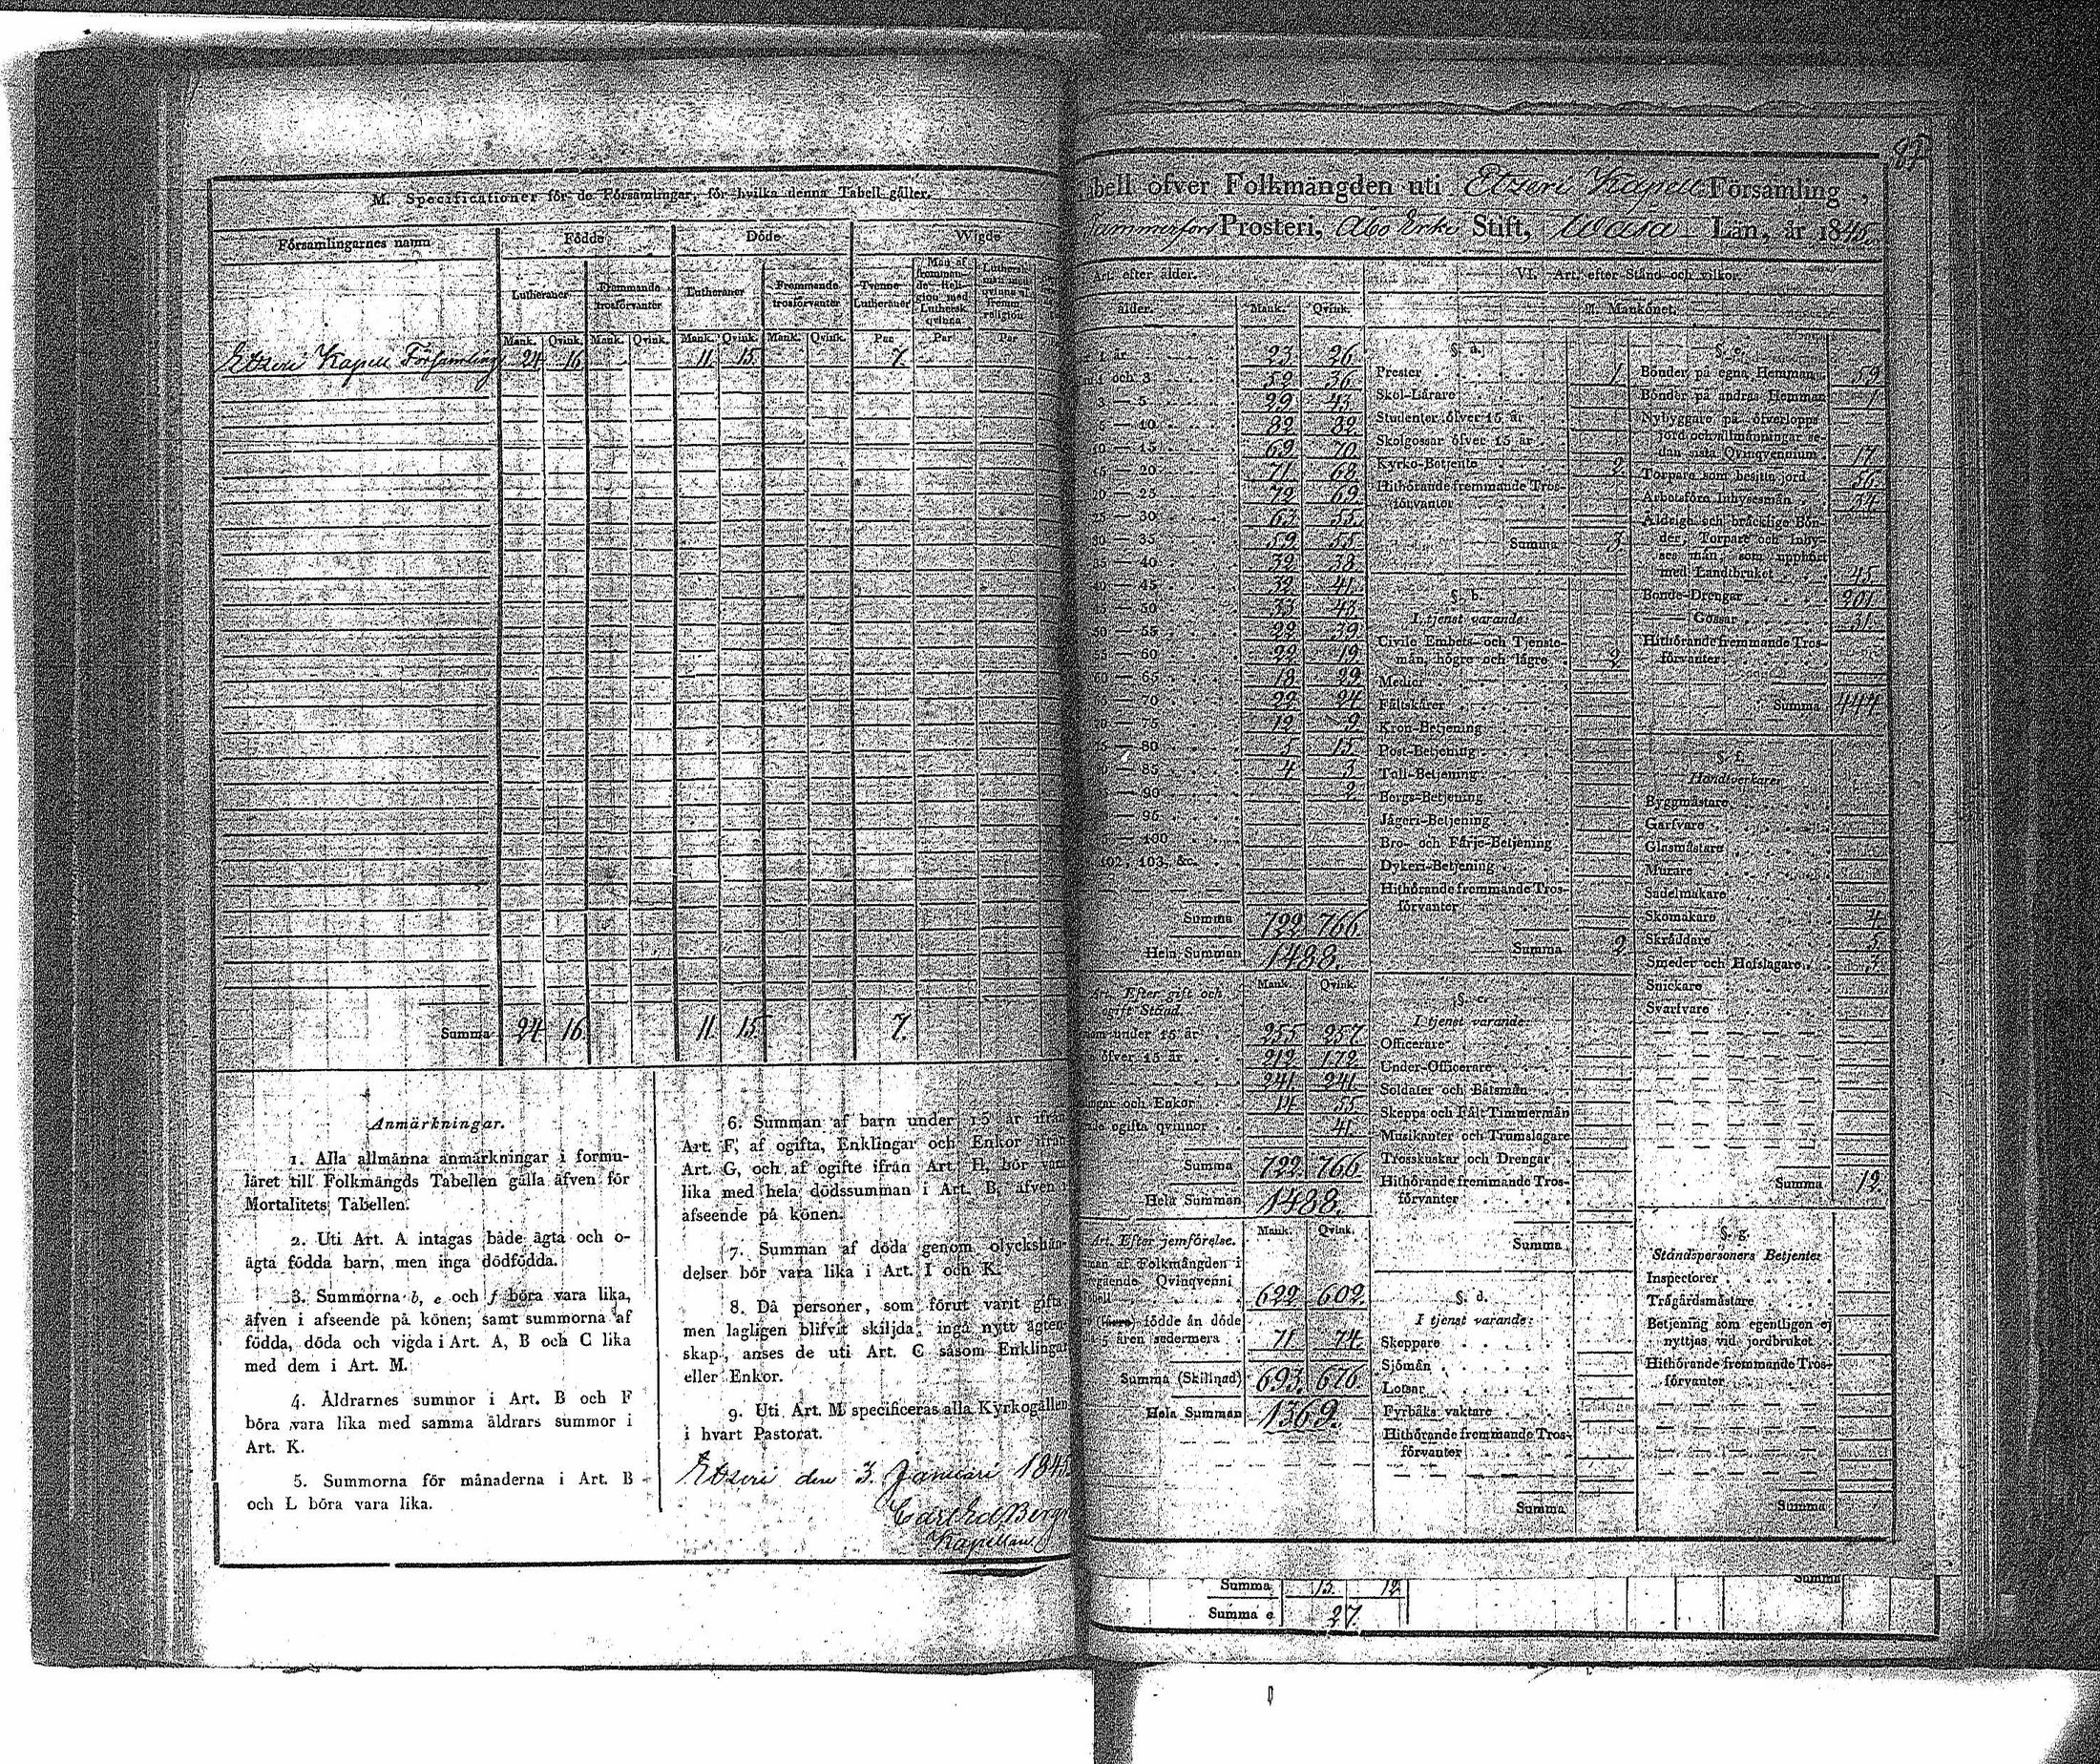 M. Specificationer för de Församlingar, för hvilka denna Tabell gäller.
Församlingarnes namn Födde Döde Wigde
Lutheraner Fremmande trosförvanter Lutheraner Fremmande trosförvanter Tvenne Lutheraner Man af fremmande Religion med Luthersk qvinna Luthersk man med qvinna af fremm. religion
Mank. Qvink. Mank. Qvink. Mank. Qvink. Mank. Qvink. Par Par Par
Etseri Kapell Församling 24 16 11 15 7.
Summa 24 16 11 15 7.
Anmärkningar.
1. Alla allmänna anmärkningar i formu-
läret till Folkmängds Tabellen gälla äfven för
Mortalitets Tabellen.
2. Uti Art. A intagas både ägta och o-
ägta födda barn, men inga dödfödda.
3. Summorna b, e och f böra vara lika,
äfven i afseende på könen; samt summorna af
födda, döda och vigda i Art. A, B och C lika
med dem i Art. M.
4. Åldrarnes summor i Art. B och F
böra vara lika med samma åldrars summor i
Art. K.
5. Summorna för månaderna i Art. B
och L böra vara lika.
6. Summan af barn under 15 år ifrån
Art. F, af ogifta, Enklingar och Enkor ifrån
Art. G, och af ogifte ifrån Art. H, bör vara
lika med hela dödssumman i Art. B, äfven i
afseende på könen.
7. Summan af döda genom olyckshän-
delser bör vara lika i Art. I och K.
8. Då personer, som förut varit gifta
men lagligen blifvit skiljda, ingå nytt ägten-
skap, anses de uti Art. C såsom Enklingar
eller Enkor.
9. Uti Art. M specificeras alla Kyrkogällen
i hvart Pastorat.
Etseri den 3. Januari 184
Carl Ed Berg
Kapellan
87
abell öfver Folkmängden uti Etzeri Kapell Församling,
Tammerfors Prosteri, Åbo Erke Stift, Wasa Län, år 1845.
Art. efter ålder.
ålder. Mank. Qvink.
1 år 23 26
1 och 3 52 36
3 — 5 29 43
5 — 10 82 82
10 — 15 69 70
15 — 20 71 68
20 — 25 72 69
25 — 30 63 55
30 — 35 59 55
35 — 40 32 38
40 — 45 32 41
45 — 50 33 43
50 — 55 22 39
55 — 60 22 19
60 — 65 18 29
— 70 22 24
70 — 75 12 9
75 — 80 3 15
— 85 4 3
— 90 2
— 95
— 100
102, 103, &c.
Summa 722 766
Hela Summan 1488.
Art. Efter gift och
ogift Stånd. Mank. Qvink.
under 15 år 255 257
öfver 15 år 212 172
241 241
ngar och Enkor 14 55
ogifta qvinnor 41
Summa 722 766
Hela Summan 1488.
Art. Efter jemförelse. Mank. Qvink.
man af Folkmängden i
gående Qvinqvenni
622 602
födde än döde
5 åren sedermera 71 74
Summa (Skillnad) 693. 676
Hela Summan 1369.
VI. Art. efter Stånd och vilkor.
A. Mankönet.
§. a.
Prester 1
Skol-Lärare
Studenter öfver 15 år
Skolgossar öfver 15 år
Kyrko-Betjente 2
Hithörande fremmande Tros-
förvanter
Summa 3
§. b.
I tjenst varande:
Civile Embets- och Tjenste-
män, högre och lägre 2
Medici
Fältskärer
Kron-Betjening
Post-Betjening
Tull-Betjening
Bergs-Betjening
Jägeri-Betjening
Bro- och Färje-Betjening
Dykeri-Betjening
Hithörande fremmande Tros-
förvanter
Summa 2
§. c.
I tjenst varande:
Officerare
Under-Officerare
Soldater och Båtsmän
Skepps och Fält Timmermän
Musikanter och Trumslagare
Trosskuskar och Drengar
Hithörande fremmande Tros-
förvanter
Summa
§. d.
I tjenst varande:
Skeppare
Sjömän
Lotsar
Fyrbåks vaktare
Hithörande fremmande Tros-
förvanter
Summa
§. e.
Bönder på egna Hemman 59
Bönder på andras Hemman 1
Nybyggare på öfverlopps
jord och allmänningar se-
dan sista Qvinqvennium 17
Torpare som besitta jord 56
Arbetsföra Inhysesmän 34
Ålderige och bräcklige Bön-
der, Torpare och Inhy-
ses män, som upphört
med Landtbruket 45
Bonde-Drengar 201
— Gossar 31
Hithörande fremmande Tros-
förvanter
Summa 444
§. f.
Handtverkare
Byggmästare
Garfvare
Glasmästare
Murare
Sadelmakare
Skomakare 4
Skräddare 5
Smeder och Hofslagare 3
Snickare
Svarfvare
Summa 12
§. g.
Ståndspersoners Betjente
Inspectorer
Trägårdsmästare
Betjening som egentligen ej
nyttjas vid jordbruket
Hithörande fremmande Tros-
förvanter
Summa
Summa 15. 12 Summa
Summa e 27.